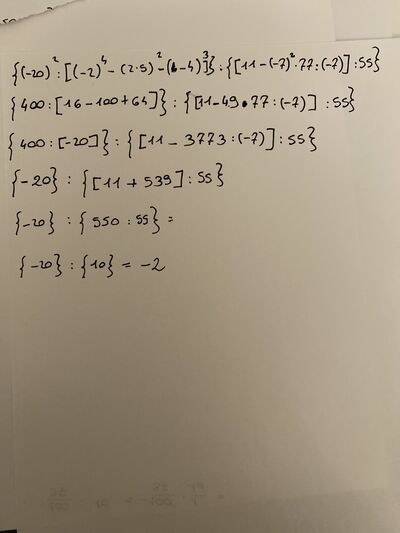 {(-20)² : [(-2)⁴ - (2·5)² - (-4)³]} : {[11 - (-7)² · 77 : (-7)] : 55}
{400 : [16 - 100 + 64]} : {[11 - 49 · 77 : (-7)] : 55}
{400 : [-20]} : {[11 - 3773 : (-7)] : 55}
{-20} : {[11 + 539] : 55}
{-20} : {550 : 55} =
{-20} : {10} = -2